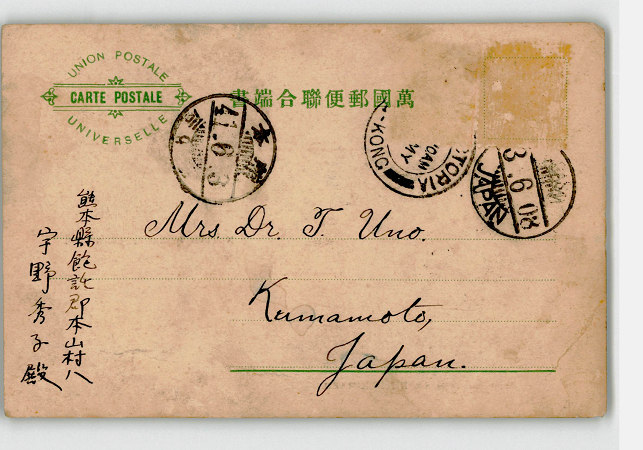 UNION POSTALE
CARTE POSTALE
UNIVERSELLE
書端合聯便郵國萬
41.6.3
KONG
VICTORIA
JAPAN
3.6.08
Mrs. Dr. T. Uno.
Kumamoto,
Japan.
熊本縣飽託郡本山村八
宇野秀子殿